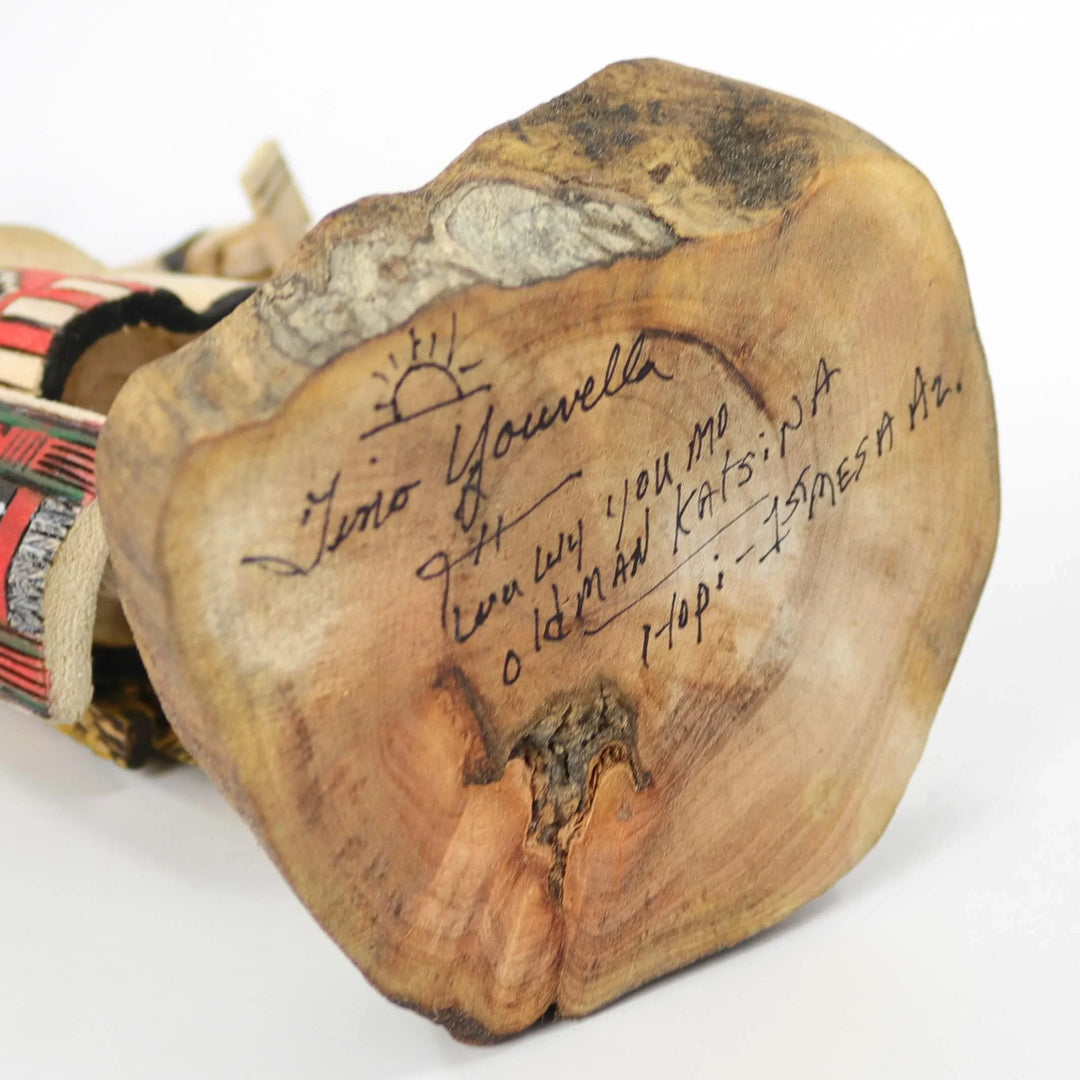 Tino Youvella
wu wy you mo
oldMAN KAtSiNA
Hopi-1stMESA Az.